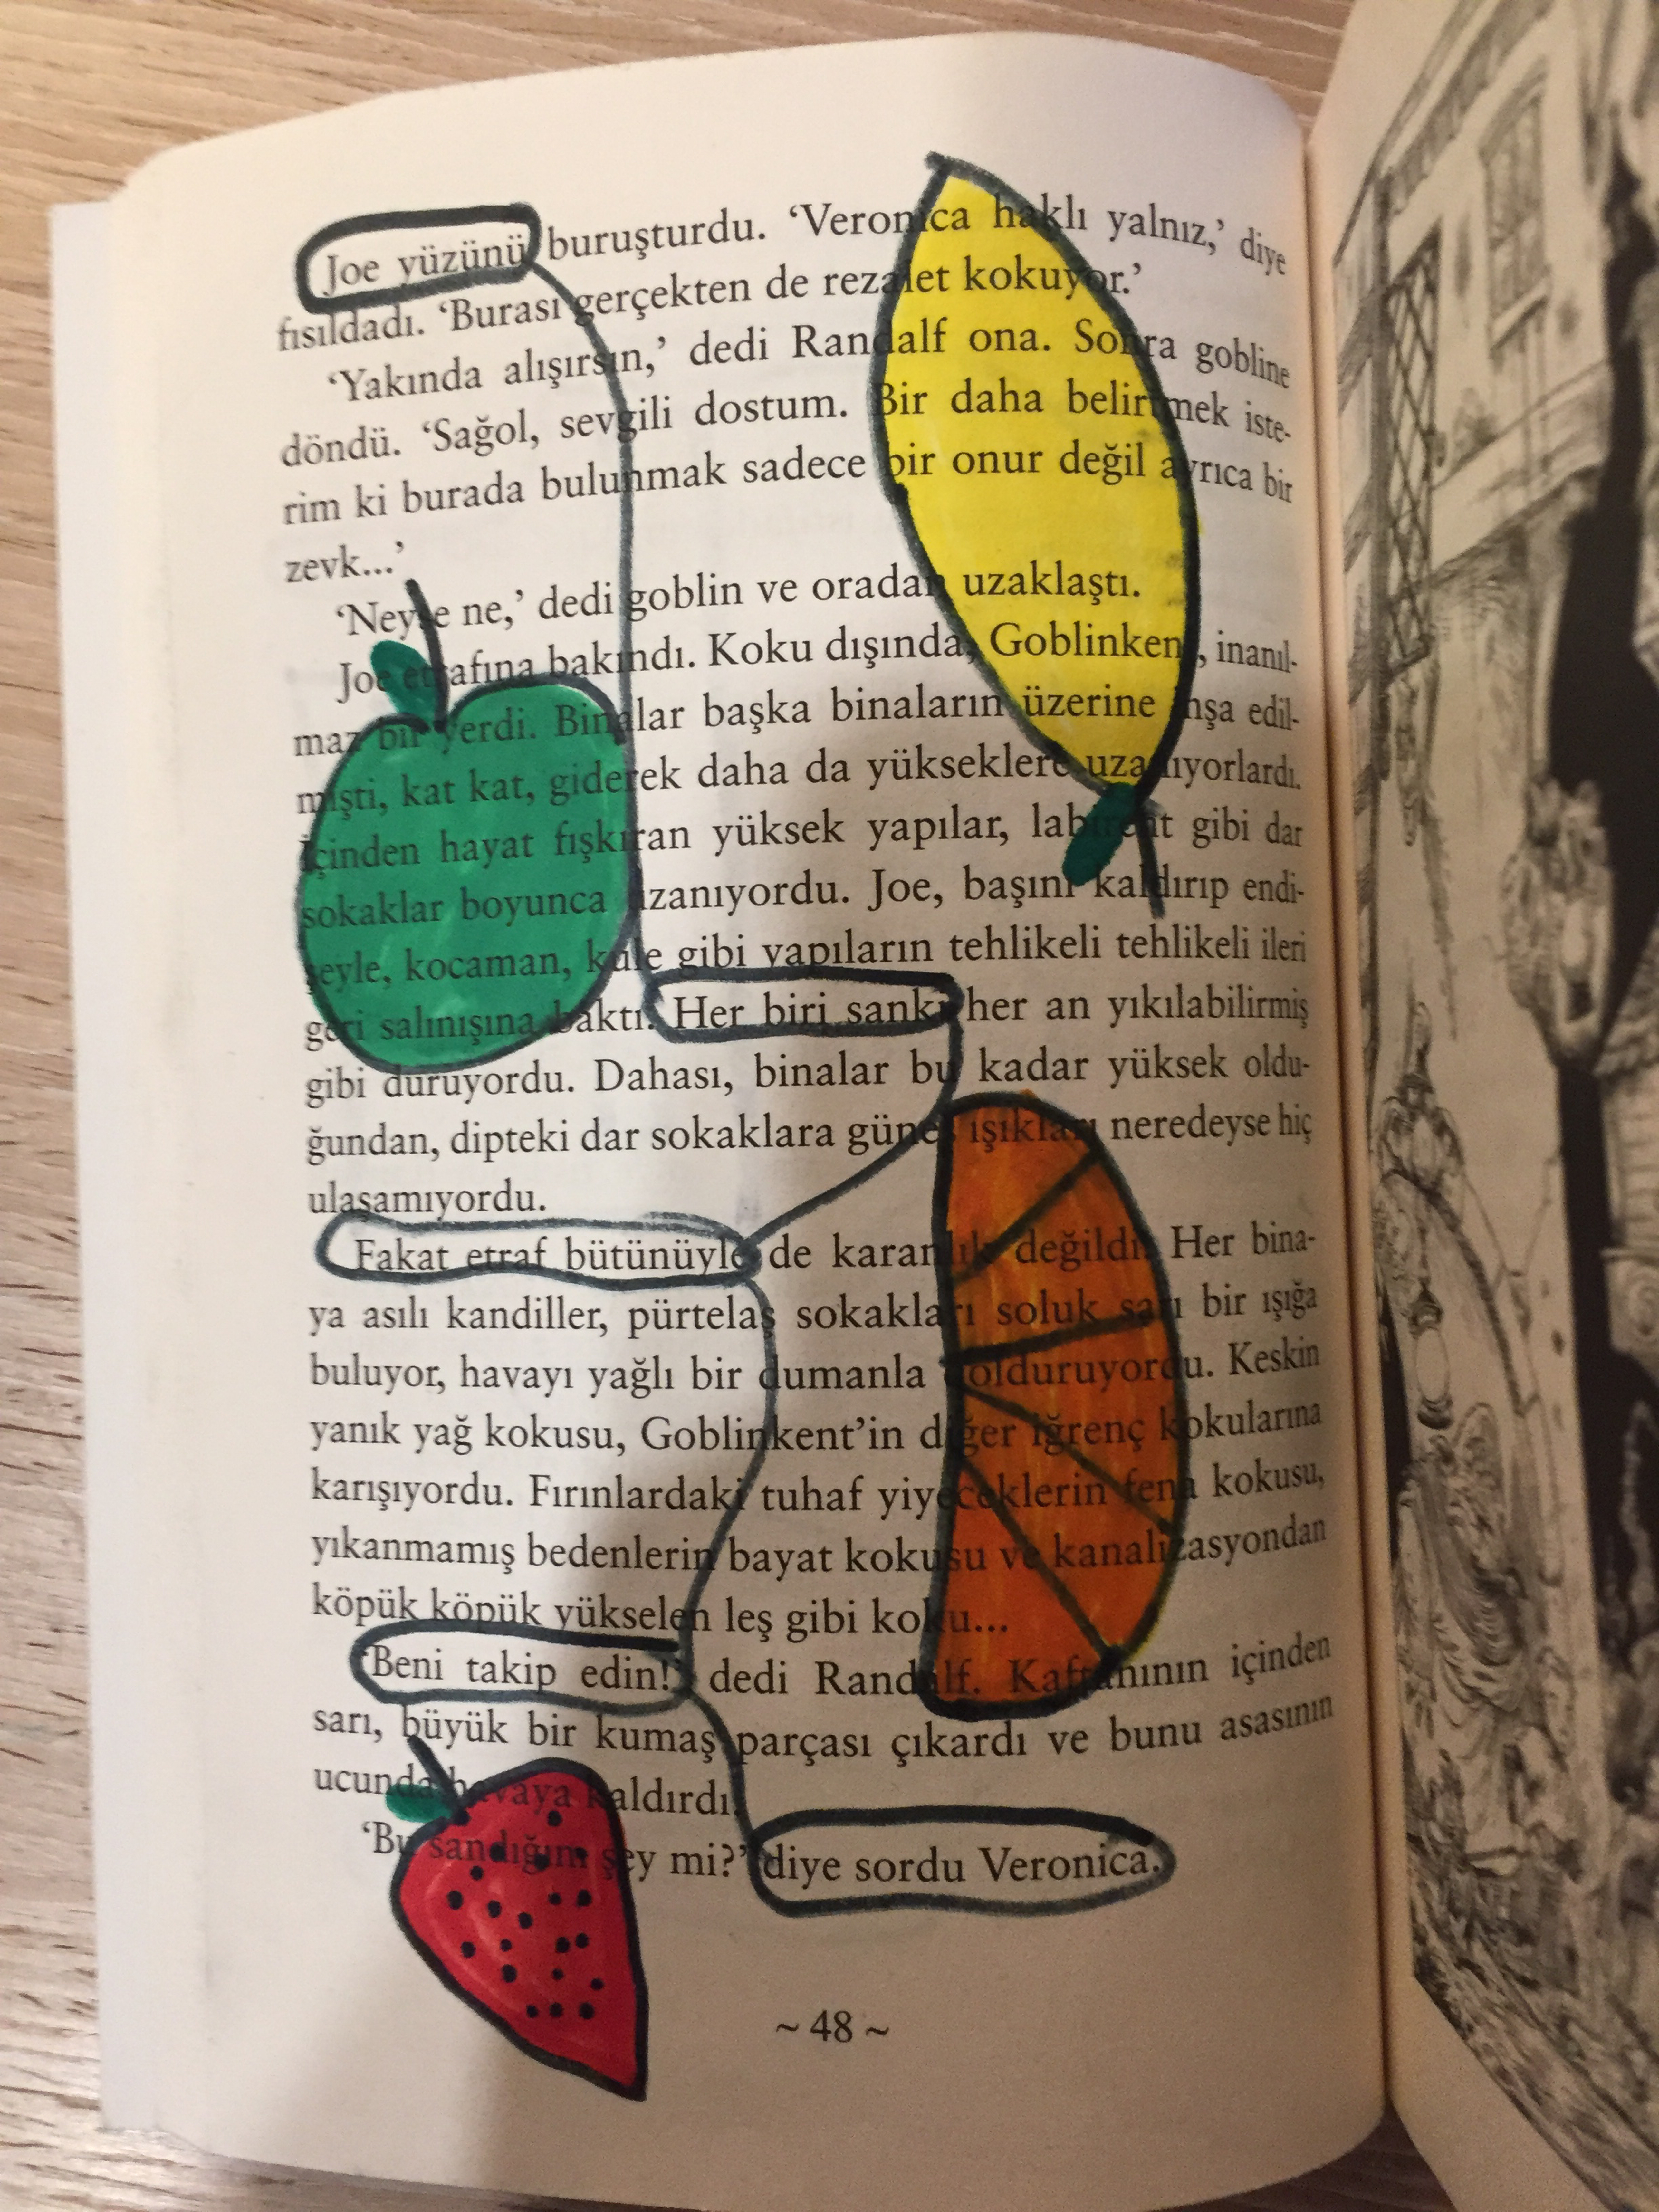 Joe yüzünü buruşturdu. ‘Veronica haklı yalnız,’ diye
fısıldadı. ‘Burası gerçekten de rezalet kokuyor.’
‘Yakında alışırsın,’ dedi Randalf ona. Sonra gobline
döndü. ‘Sağol, sevgili dostum. Bir daha belirtmek iste-
rim ki burada bulunmak sadece bir onur değil ayrıca bir
zevk...’
‘Neyse ne,’ dedi goblin ve oradan uzaklaştı.
Joe etrafına bakındı. Koku dışında, Goblinkent, inanıl-
maz bir yerdi. Binalar başka binaların üzerine inşa edil-
mişti, kat kat, giderek daha da yükseklere uzanıyorlardı.
İçinden hayat fışkıran yüksek yapılar, labirent gibi dar
sokaklar boyunca uzanıyordu. Joe, başını kaldırıp endi-
şeyle, kocaman, kule gibi yapıların tehlikeli tehlikeli ileri
geri salınışına baktı. Her biri sanki her an yıkılabilirmiş
gibi duruyordu. Dahası, binalar bu kadar yüksek oldu-
ğundan, dipteki dar sokaklara güneş ışıkları neredeyse hiç
ulaşamıyordu.
Fakat etraf bütünüyle de karanlık değildi. Her bina-
ya asılı kandiller, pürtelaş sokakları soluk sarı bir ışığa
buluyor, havayı yağlı bir dumanla dolduruyordu. Keskin
yanık yağ kokusu, Goblinkent’in diğer iğrenç kokularına
karışıyordu. Fırınlardaki tuhaf yiyeceklerin fena kokusu,
yıkanmamış bedenlerin bayat kokusu ve kanalizasyondan
köpük köpük yükselen leş gibi koku...
‘Beni takip edin!’ dedi Randalf. Kaftanının içinden
sarı, büyük bir kumaş parçası çıkardı ve bunu asasının
ucunda havaya kaldırdı.
‘Bu sandığım şey mi?’ diye sordu Veronica.
~ 48 ~